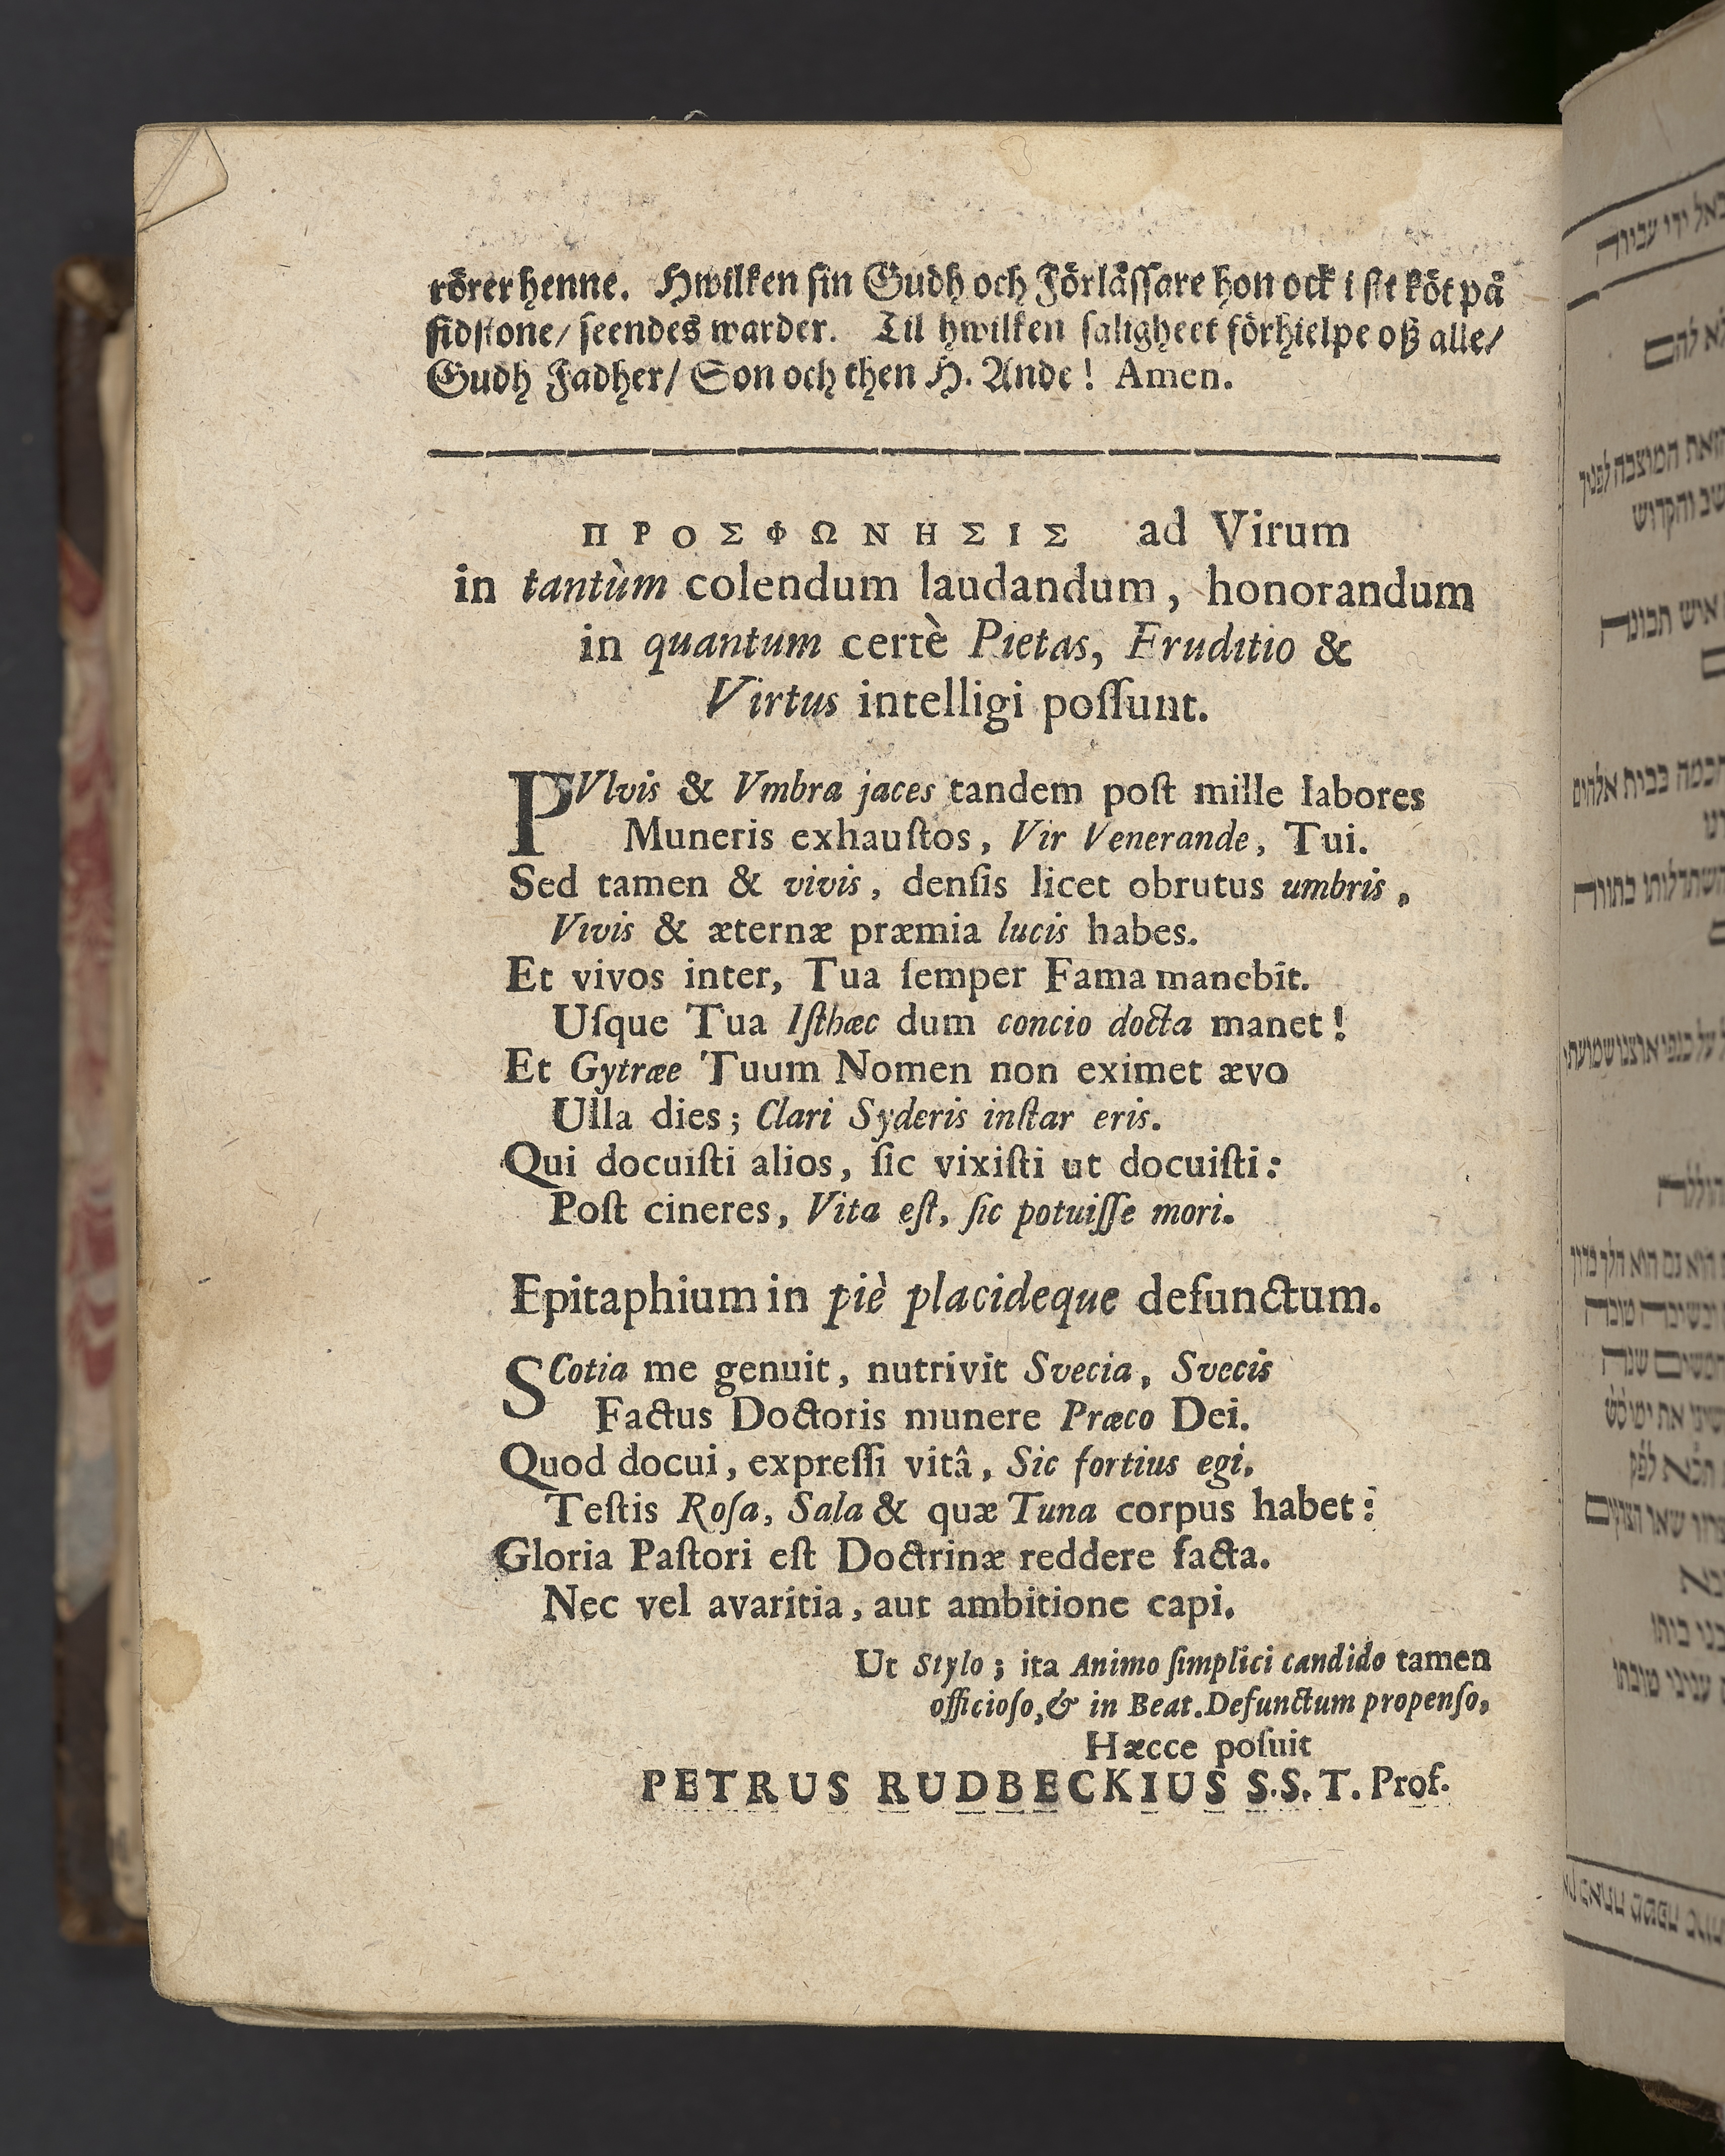 rörer henne. Hwilken sin Gudh och Förlåssare hon ock i sit köt på
sidstone/ seendes warder. Til hwilken saligheet förhielpe oß alle/
Gudh Fadher/ Son och then H. Ande! Amen.
ΠΡΟΣΦΩΝΗΣΙΣ ad Virum
in tantùm colendum laudandum, honorandum
in quantum certè Pietas, Eruditio &
Virtus intelligi poſſunt.
PVlvis & Vmbra jaces tandem poſt mille labores
Muneris exhauſtos, Vir Venerande, Tui.
Sed tamen & vivis, denſis licet obrutus umbris,
Vivis & æternæ præmia lucis habes.
Et vivos inter, Tua ſemper Fama manebit.
Uſque Tua Iſthæc dum concio docta manet!
Et Gytræe Tuum Nomen non eximet ævo
Ulla dies; Clari Syderis inſtar eris.
Qui docuiſti alios, ſic vixiſti ut docuiſti:
Poſt cineres, Vita eſt, ſic potuiſſe mori.
Epitaphium in piè placideque defunctum.
SCotia me genuit, nutrivit Svecia, Svecis
Factus Doctoris munere Præco Dei.
Quod docui, expreſſi vitâ, Sic fortius egi.
Teſtis Roſa, Sala & quæ Tuna corpus habet:
Gloria Paſtori eſt Doctrinæ reddere facta.
Nec vel avaritia, aut ambitione capi.
Ut Stylo; ita Animo ſimplici candido tamen
officioſo, & in Beat. Defunctum propenſo,
Hæcce poſuit
PETRUS RUDBECKIUS S.S.T. Prof.
לא להם
איש תבונה